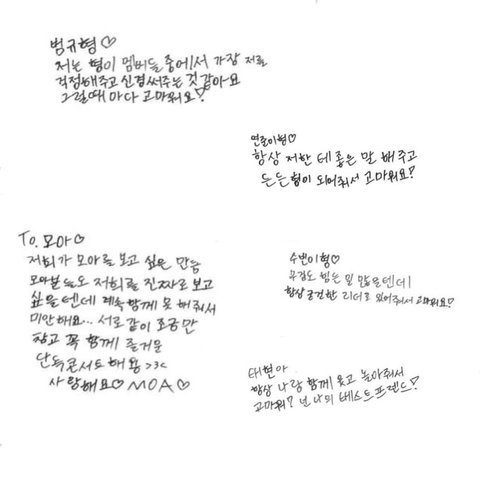 범규형♡
저는 형이 멤버들 중에서 가장 저를
걱정해주고 신경써주는 것 같아요
그럴때 마다 고마워요!
연준이형♡
항상 저한테 좋은 말 해주고
든든형이 되어줘서 고마워요!
To. 모아♡
저희가 모아를 보고 싶은 만큼
모아분들도 저희를 진짜로 보고
싶을텐데 계속 함께 못 해줘서
미안해요... 서로 같이 조금만
참고 꼭 함께 즐거운
단독콘서트해용 >3<
사랑해요♡ MOA♡
수빈이형♡
무겁고 힘든 일 많을텐데
항상 굳건한 리더로 있어줘서 고마워요!
태현아
항상 나랑 함께 웃고 놀아줘서
고마워? 넌 나의 베스트프렌드!